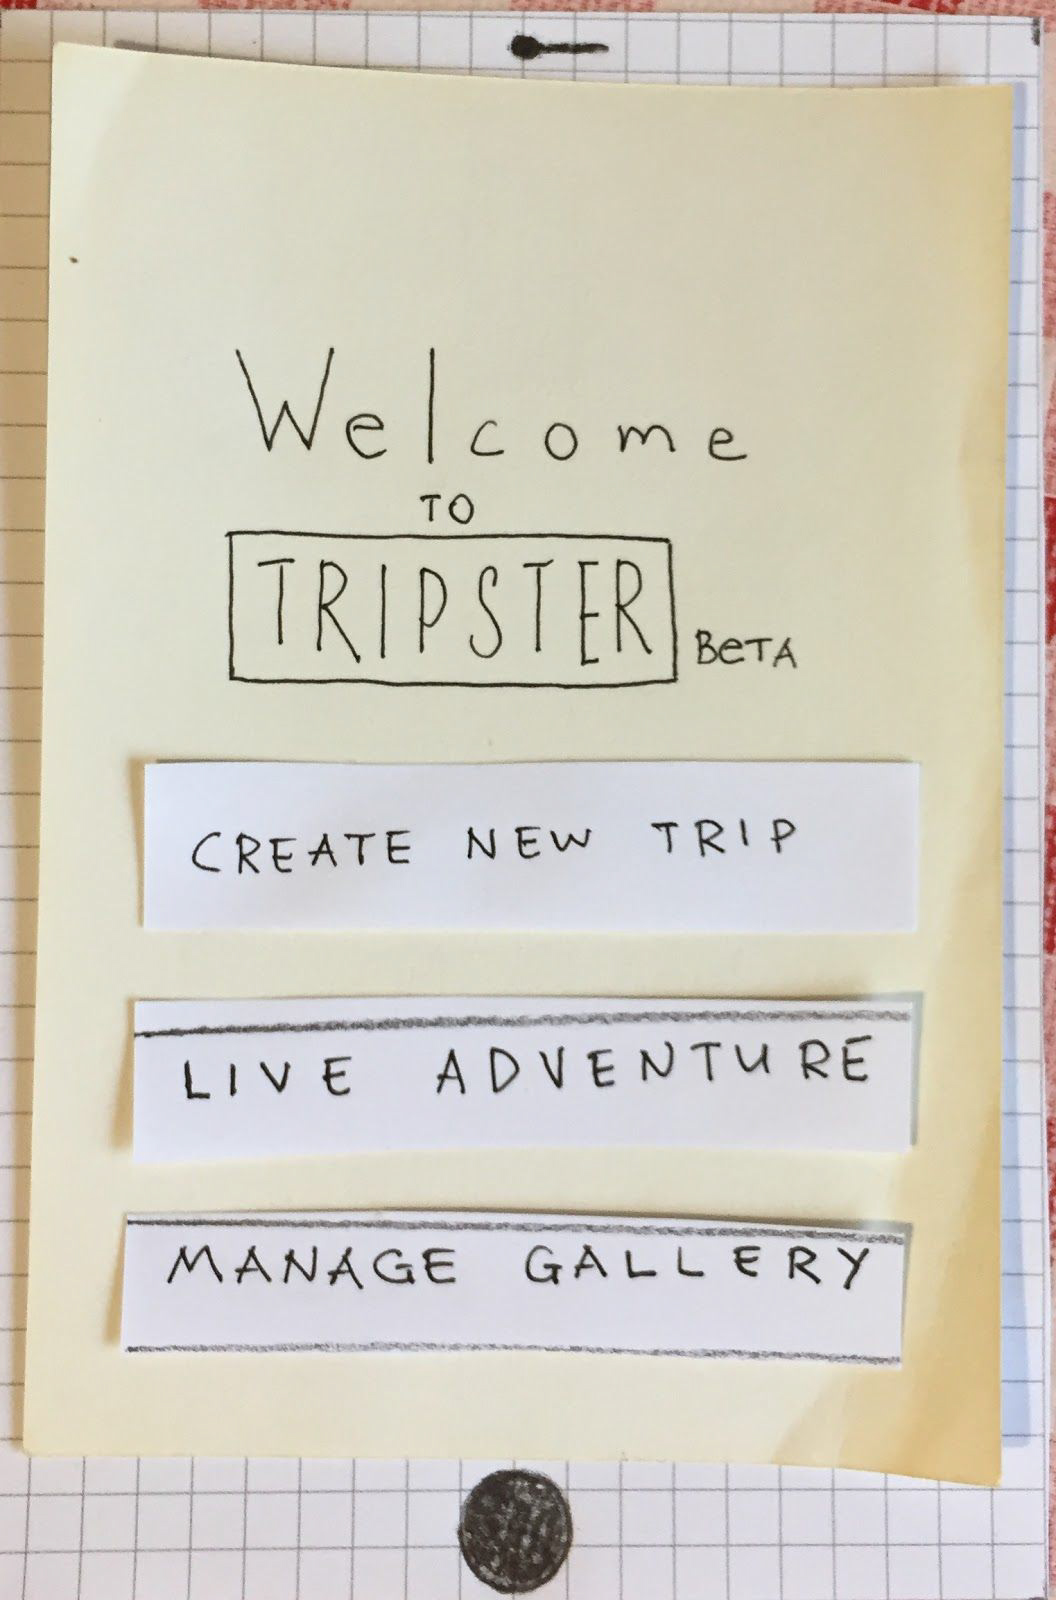 Welcome
TO
TRIPSTER
BeTA
CREATE NEW TRIP
LIVE ADVENTURE
MANAGE GALLERY